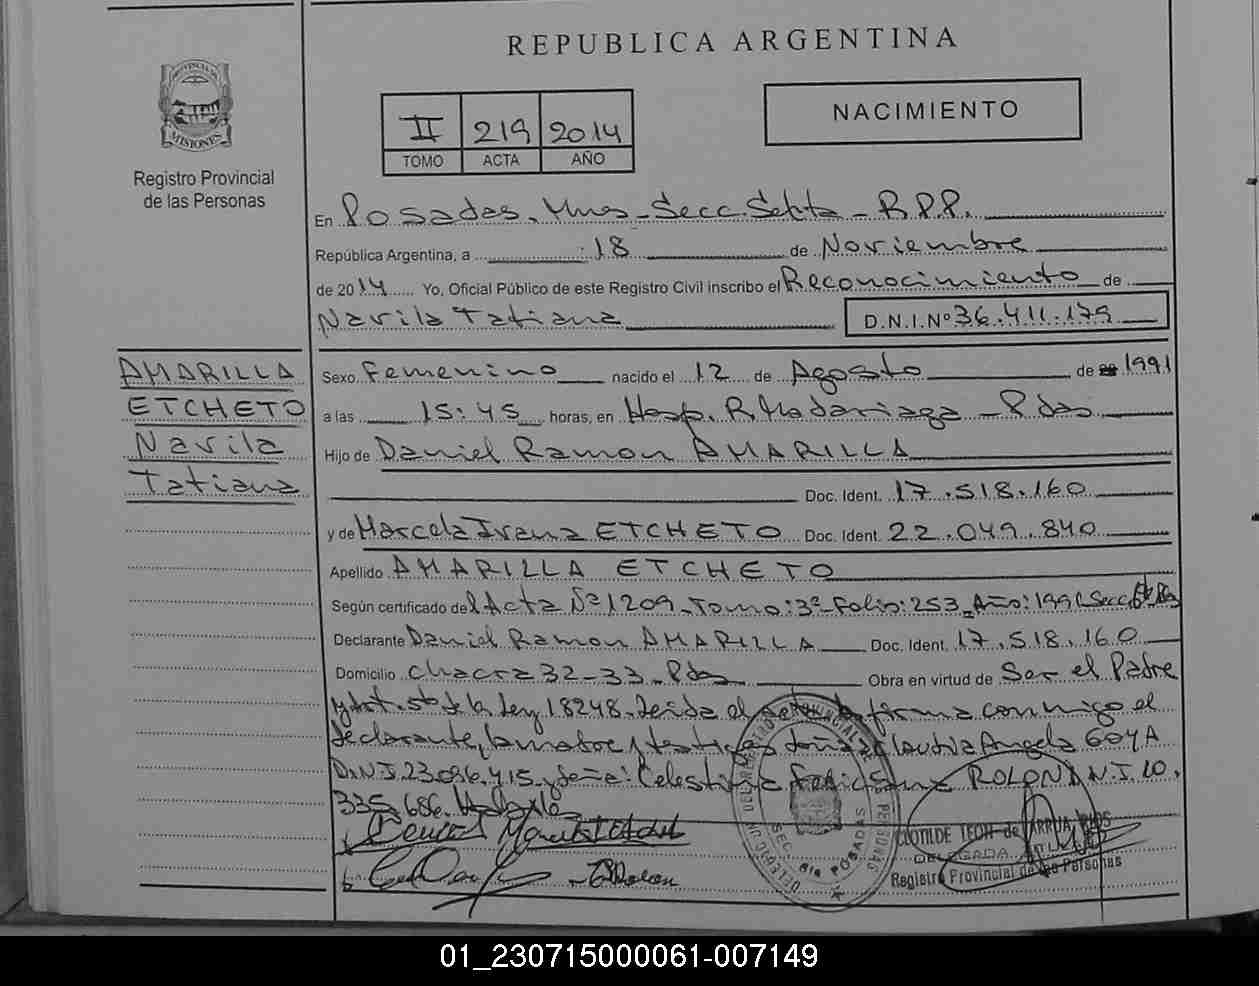 REPUBLICA ARGENTINA
PROVINCIA DE
MISIONES
Registro Provincial
de las Personas
NACIMIENTO
II 219 2014
TOMO ACTA AÑO
En Posadas, Mnes - Secc. Sexta - R.P.P.
República Argentina, a 18 de Noviembre
de 2014 Yo, Oficial Público de este Registro Civil inscribo el Reconocimiento de
Navila Tatiana D.N.I.Nº 36.411.179
AMARILLA
ETCHETO
Navila
Tatiana
Sexo Femenino nacido el 12 de Agosto de 1991
a las 15:45 horas, en Hosp. R. Madariaga - Pdas
Hijo de Daniel Ramon AMARILLA
Doc. Ident. 17.518.160
y de Marcela Ivana ETCHETO Doc. Ident. 22.049.840
Apellido AMARILLA ETCHETO
Según certificado del Acta Nº 1209 - Tomo: 3º - Folio: 253 - Año: 1991 Secc. 6ta Pdas
Declarante Daniel Ramon AMARILLA Doc. Ident. 17.518.160
Domicilio Chacra 32-33 - Pdas Obra en virtud de Ser el Padre
y Art. 5to de la Ley 18248. Leida el acta la firma conmigo el
declarante, la madre y testigos doña: Claudia Angela GOYA
D.N.I. 23.096.415 y doña: Celestina ROLON D.N.I. 10.
335.686.
SEC. 6ta POSADAS
CLOTILDE LEON de ARRUA
DELEGADA TITULAR
Registro Provincial de las Personas
01_230715000061-007149